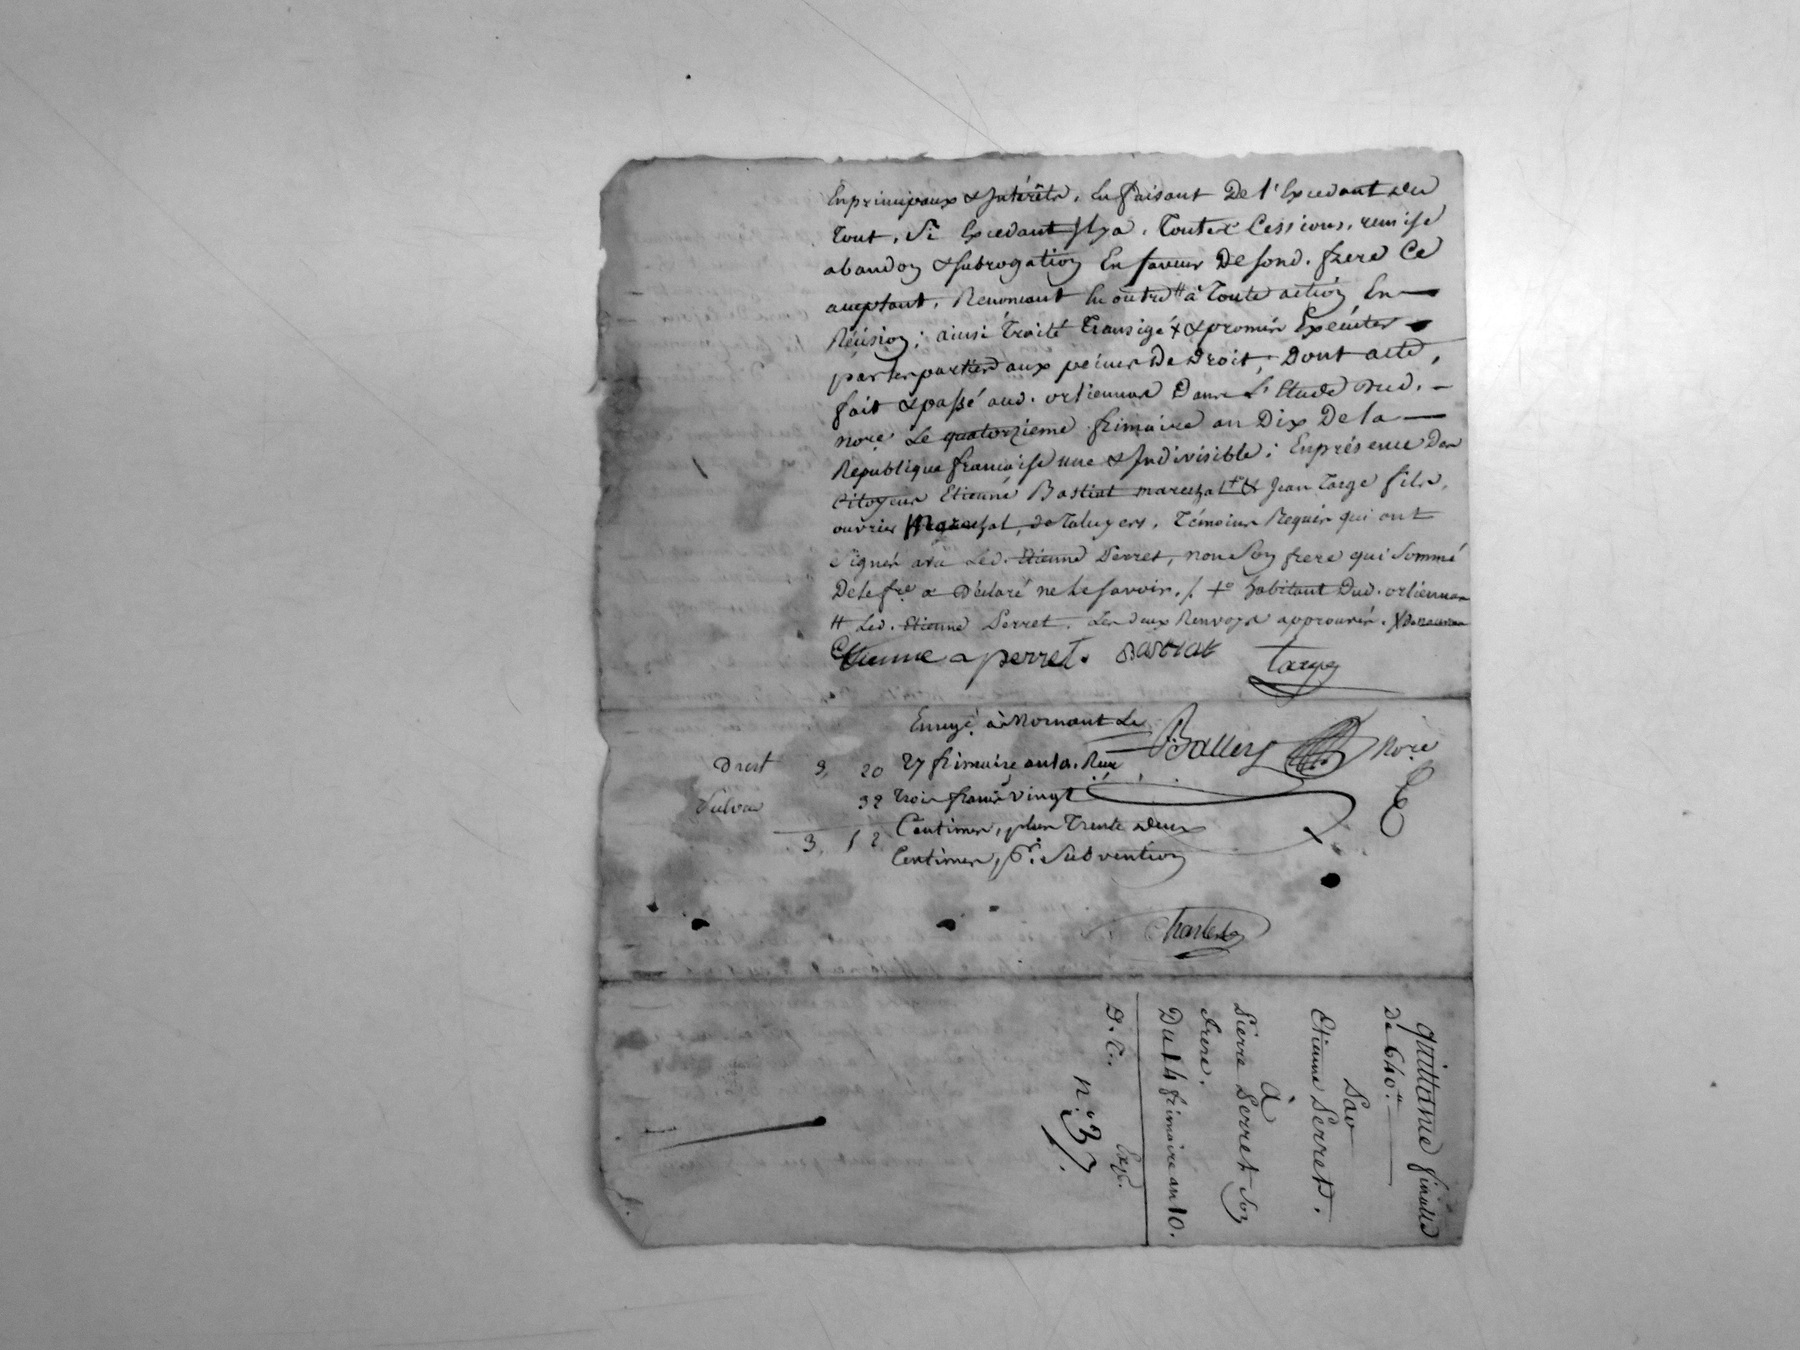 En principaux & Intérêts, En faisant De l'Excedant du
Tout, Si Excedant Il y a, Toutes Cessions, remise
abandon & subrogation En faveur De sond. frere Ce
acceptant, Renoncant En outre # à Toute action En
Révision; ainsi Traité Transigé x & promis Exécuter
par les parties aux peines De Droit, Dont acte,
fait & passé aud. orliennas Dans L'Etude Dud.
nore. Le quatorzieme frimaire an Dix De la
République francaise une & Indivisible; En présence Des
Citoyens Etienne Bastiat marechal +o & Jean Targe fils,
ouvrier Marechal, de Taluyers, Témoins Requis qui ont
signés avec Led. Etienne Perret, non Son frere qui Sommé
De le fre. a Déclaré ne le savoir ./. +o habitant Dud. orliennas
# Led. Etienne Perret. Les deux Renvoys approuvés.
Etienne a perret. Bastiat Targe
Balley Nore
Enregé. à Mornant Le
Droit 3, 20 27 frimaire an 10. Reçu
Subon 32 trois francs vingt
3, 52 Centimes, plus Trente Deux
Centimes, pr. Subvention
quittance finalle
De 640.#
Par
Etienne Perret.
à
Pierre Perret son
frere.
Du 14 frimaire an 10.
Exp.
n.° 37.